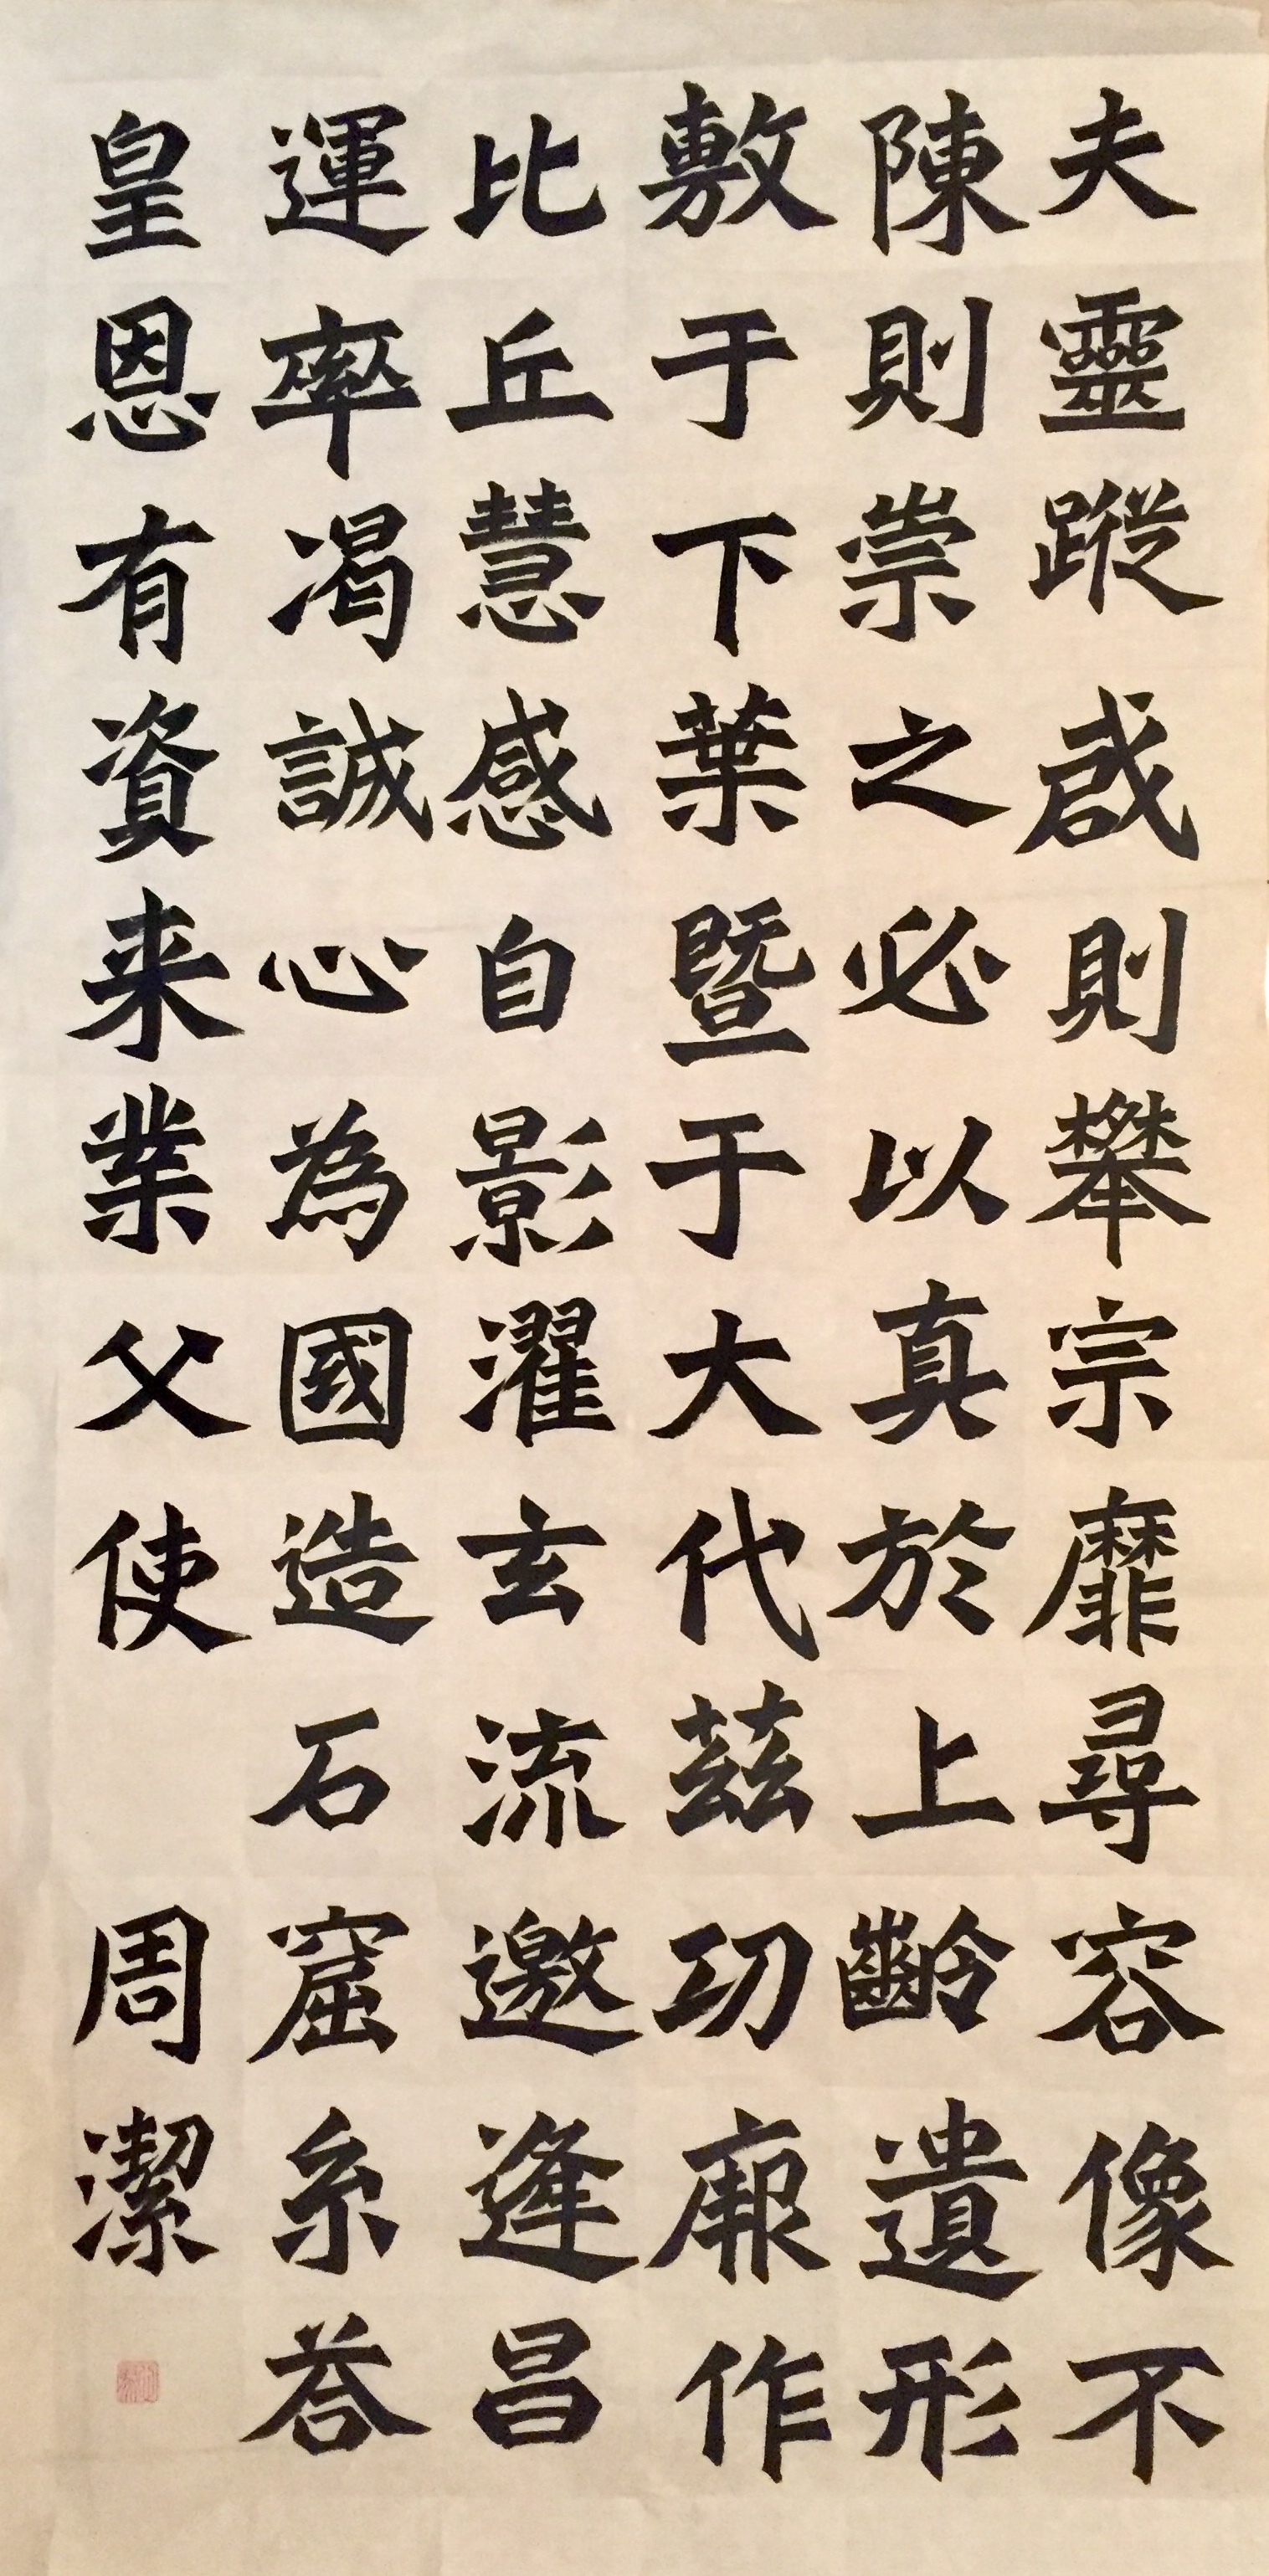 夫靈蹤啟則攀宗靡尋容像不
陳則崇之必以真於上齡遺形
敷于下葉暨于大代茲功厥作
比丘慧感自影濯玄流邀逢昌
運率渴誠心為國造石窟糸荅
皇恩有資来業父使
周潔